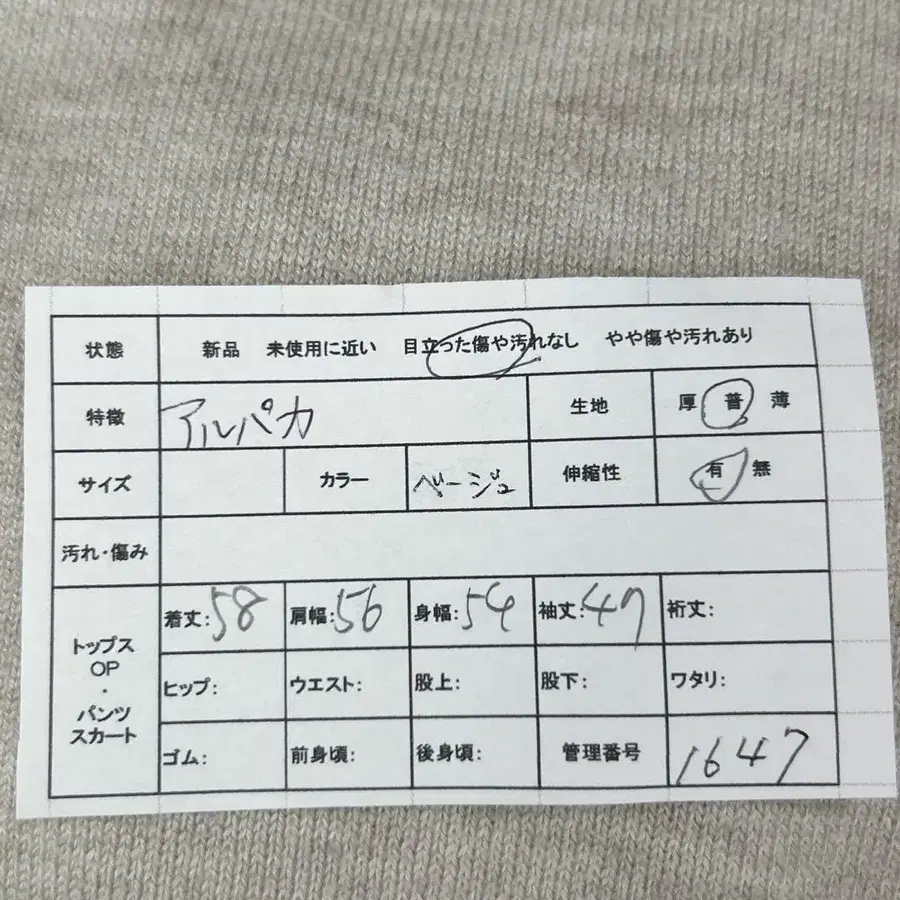 状態 新品 未使用に近い 目立った傷や汚れなし やや傷や汚れあり
特徴 アルパカ 生地 厚 普 薄
サイズ カラー ベージュ 伸縮性 有 無
汚れ・傷み
トップス OP ・ パンツ スカート
着丈:58 肩幅:56 身幅:54 袖丈:47 裄丈:
ヒップ: ウエスト: 股上: 股下: ワタリ:
ゴム: 前身頃: 後身頃: 管理番号 1647